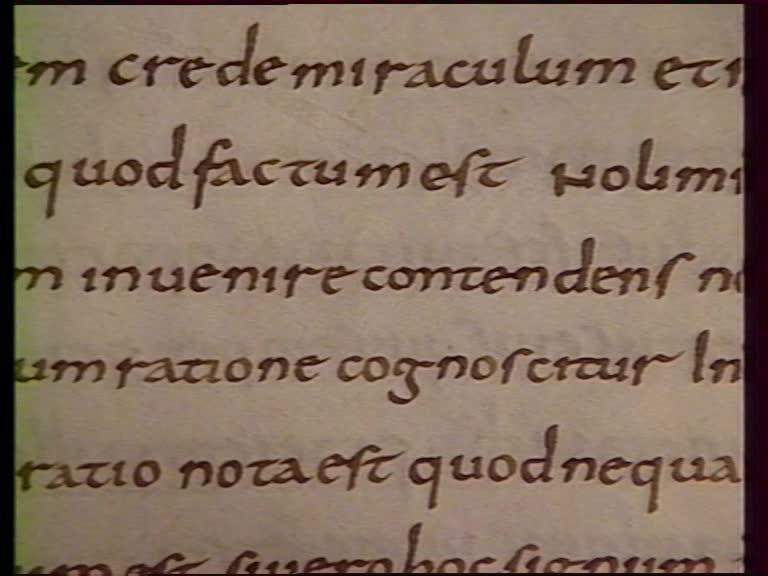 m crede miraculum et
quod factum est Noli mi
m inuenire contendens n
um ratione cognoscitur In
ratio nota est quod nequa
um est si uero hoc signum